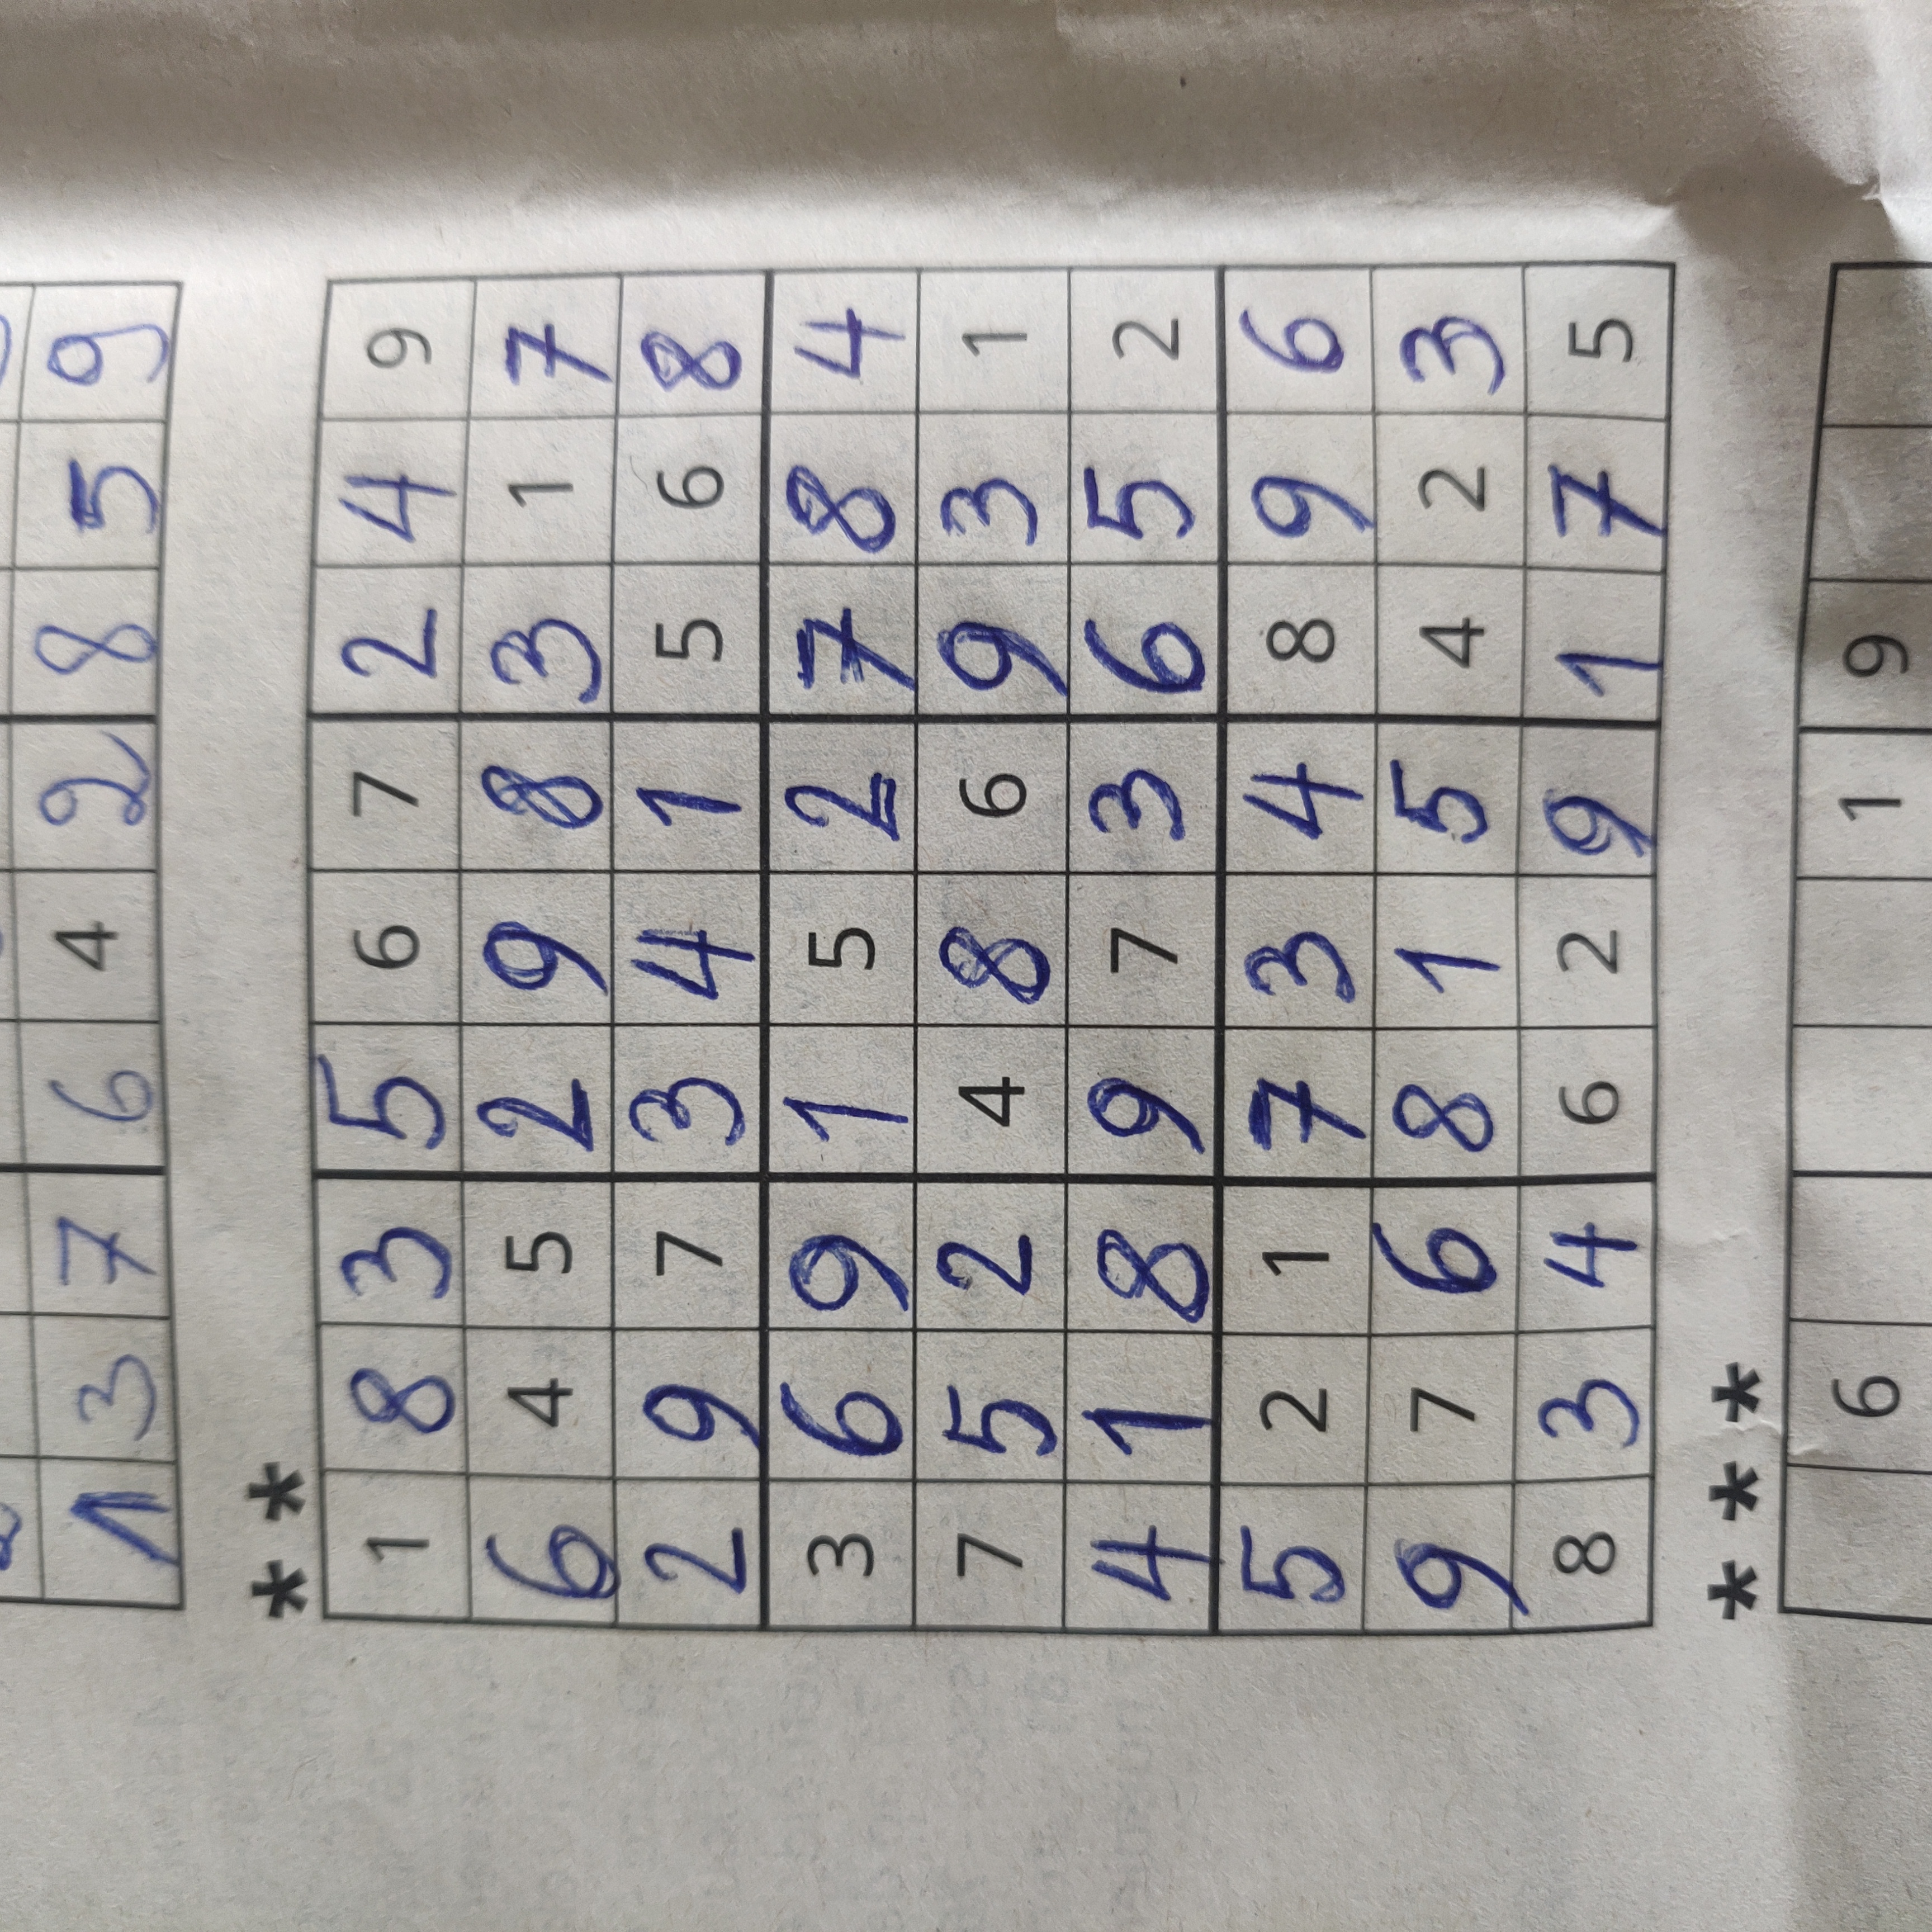 1 3 7 6 4 2 8 5 9
* *
1 8 3 5 6 7 2 4 9
6 4 5 2 9 8 3 1 7
2 9 7 3 4 1 5 6 8
3 6 9 1 5 2 7 8 4
7 5 2 4 8 6 9 3 1
4 1 8 9 7 3 6 5 2
5 2 1 7 3 4 8 9 6
9 7 6 8 1 5 4 2 3
8 3 4 6 2 9 1 7 5
* * *
6 1 9